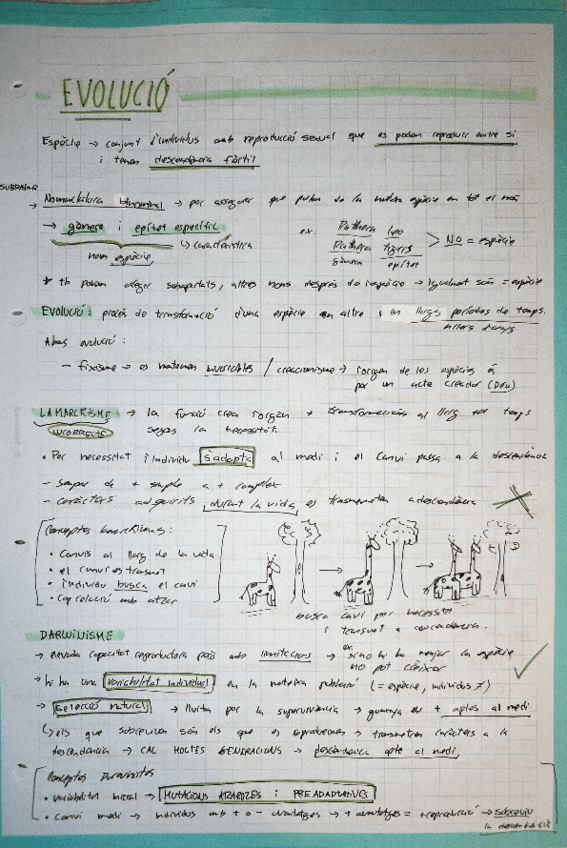 EVOLUCIÓ
Espècie → conjunt d'individus amb reproducció sexual que es poden reproduir entre si
i tenen descendència fèrtil
SUBRATLLAR
→ Nomenclatura binominal → per assegurar que parlem de la mateixa espècie en tot el món
→ gènere i epítet específic
↳ característica
nom espècie
ex. Panthera leo
Panthera tigris > NO = espècie
gènere epítet
* tb poden afegir subapartats, altres noms després de l'espècie → igualment són = espècie
EVOLUCIÓ: procés de transformació d'una espècie en altre i en llargs períodes de temps.
milers d'anys
Abans evolució:
- fixisme → es mantenen invariables / creacionisme → l'origen de les espècies és
per un acte creador (Déu)
LAMARCKISME → la funció crea l'òrgan + transformacions al llarg del temps
INCORRECTE segons la necessitat.
• Per necessitat l'individu s'adapta al medi i el canvi passa a la descendència
- Sempre de + simple a + complex
- Caràcters adquirits durant la vida es transmeten a descendència
Conceptes lamarckians:
• Canvis al llarg de la vida
• el canvi es transmet
• l'individu busca el canvi
• Cap relació amb atzar
busca canvi per necessitat
i transmet a descendència.
DARWINISME
→ elevada capacitat reproductora però amb limitacions → ex. si no hi ha menjar la espècie
no pot créixer
→ hi ha una variabilitat individual en la mateixa població (= espècie, individus ≠)
→ selecció natural → lluita per la supervivència → guanya el + aptes al medi
↳ els que sobreviuen són els que es reprodueixen → transmeten caràcters a la
descendència → CAL MOLTES GENERACIONS → descendència apte al medi
Conceptes Darwinistes
• variabilitat inicial → MUTACIONS ATZAROZES i PREADAPTATIVES
• Canvi medi → individus amb + o - avantatges → + avantatges = + reproducció → sobreviu
la descendència